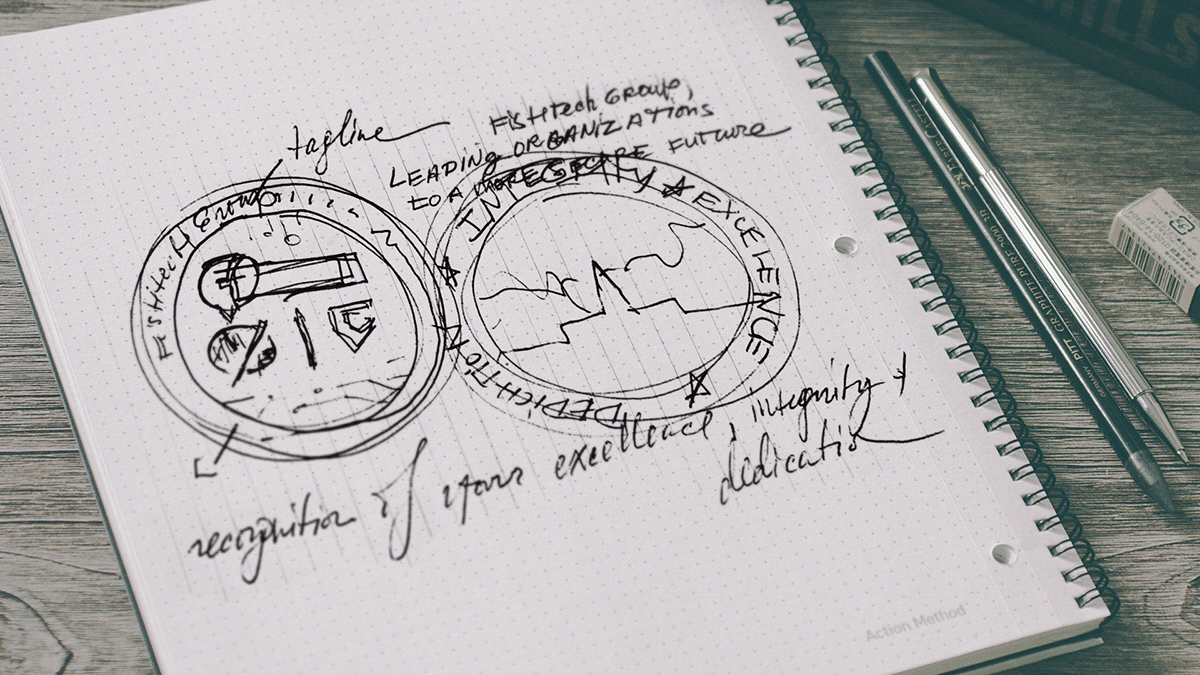 tagline
FisHtech GROUP,
LEADING ORGANIZATIONS
to A MORE SECURE FUTURE
FisHtecH Group
INTEGRITY ★ EXCELENCE ★ DEDICATION ★
recognition of your excellence, integrity +
dedication
Action Method
PITT GRAPHITE PURE 2900 3B